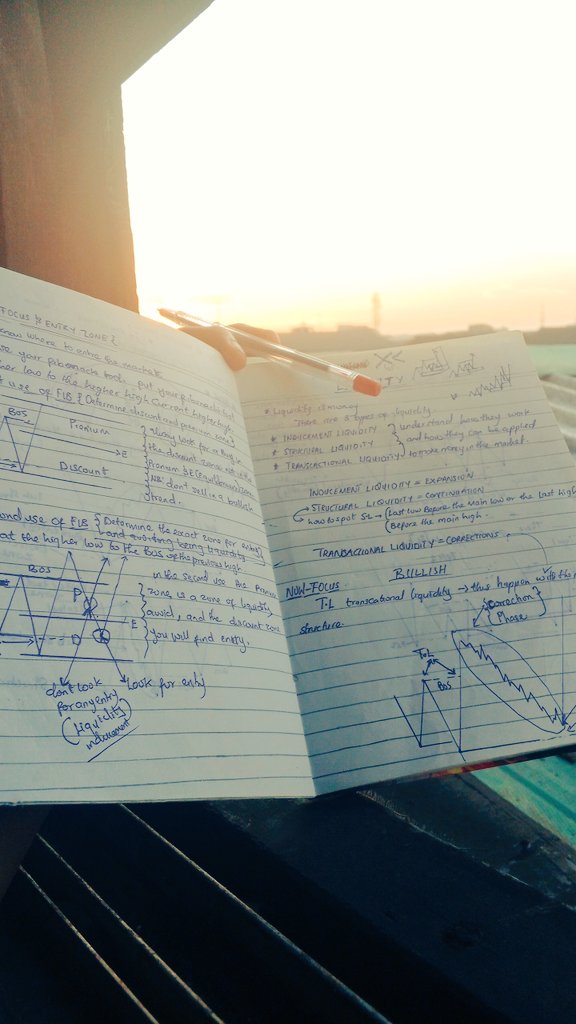 FOCUS & ENTRY ZONE {
know where to enter the markets
your fibonacci tool, put your fibonacci at
low to the higher high (current high) high
use of FIB { Determine discount and premium zone }
BOS
Premium
E
Discount
always look for entry in
the discount zone, not in the
Premium & E (equilibrium) zone
NB: don't sell in a bullish
trend.
use of FIB { Determine the exact zone for entry
and avoiding being liquidity
at the higher low to the BOS of the previous high.
BOS
P
E
D
in the second use the Premium
zone is a zone of liquidity
avoid, and the discount zone
you will find entry.
don't look
for any entry
(Liquidity)
inducement
look for entry
* Liquidity is money
There are 3 types of liquidity.
* INDUCEMENT LIQUIDITY
* STRUCTURAL LIQUIDITY
* TRANSACTIONAL LIQUIDITY
understand how they work
and how they can be applied
to make money in the market.
INDUCEMENT LIQUIDITY = EXPANSION
STRUCTURAL LIQUIDITY = CONTINUATION
how to spot SL → (Last low Before the Main low or the last high
(Before the main high.
TRANSACTIONAL LIQUIDITY = CORRECTIONS
BULLISH
NOW-FOCUS
T.L transcational liquidity → thus happen with the
structure.
Correction
Phase
T.L
BOS